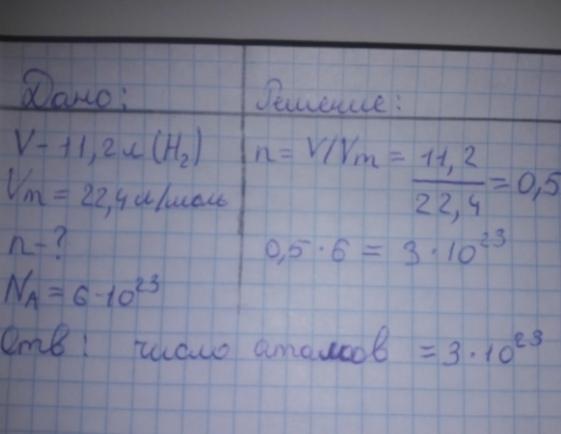 Дано:
Решение:
V - 11,2 л (H₂)
Vm = 22,4 л/моль
n - ?
NA = 6 · 10²³
n = V/Vm = 11,2 / 22,4 = 0,5
0,5 · 6 = 3 · 10²³
Отв: число атомов = 3 · 10²³